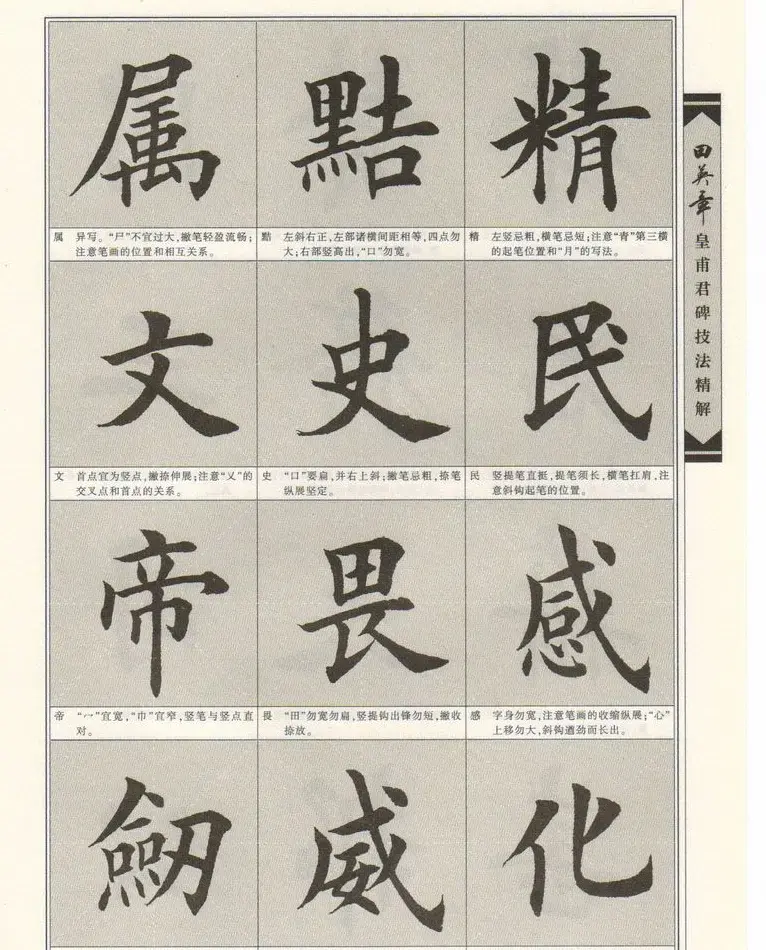 属 黠 精
属 异写。“尸”不宜过大,撇笔轻盈流畅;
注意笔画的位置和相互关系。
黠 左斜右正,左部诸横间距相等,四点勿
大;右部竖高出,“口”勿宽。
精 左竖忌粗,横笔忌短;注意“青”第三横
的起笔位置和“月”的写法。
文 史 民
文 首点宜为竖点,撇捺伸展;注意“乂”的
交叉点和首点的关系。
史 “口”要扁,并右上斜;撇笔忌粗,捺笔
纵展坚定。
民 竖提笔直挺,提笔须长,横笔扛肩,注
意斜钩起笔的位置。
帝 畏 感
帝 “冖”宜宽,“巾”宜窄,竖笔与竖点直
对。
畏 “田”勿宽勿扁,竖提钩出锋勿短,撇收
捺放。
感 字身勿宽,注意笔画的收缩纵展;“心”
上移勿大,斜钩遒劲而长出。
劒 威 化
田英章皇甫君碑技法精解